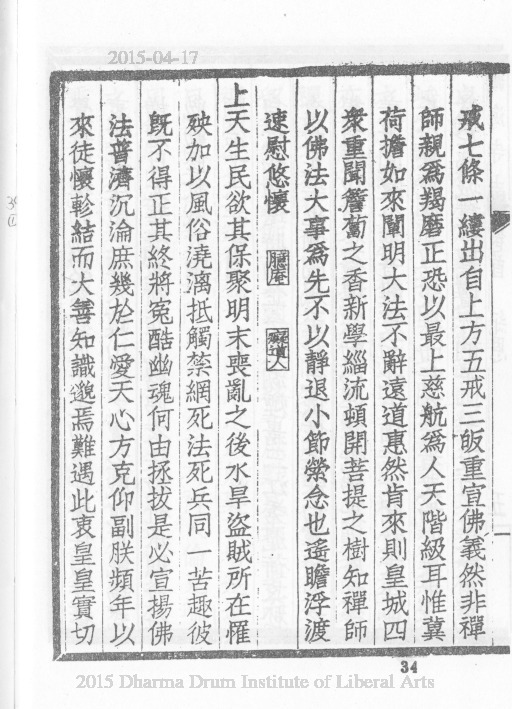 2015-04-17
戒七條一縷出自上方五戒三皈重宣佛義然非禪
師親爲羯磨正恐以最上慈航爲人天階級耳惟冀
荷擔如來闡明大法不辭遠道惠然肯來則皇城四
衆重聞簷蔔之香新學緇流頓開菩提之樹知禪師
以佛法大事爲先不以靜退小節縈念也遙瞻浮渡
速慰悠懷 道人
上天生民欲其保聚明末喪亂之後水旱盜賊所在罹
殃加以風俗澆漓抵觸禁網死法死兵同一苦趣彼
旣不得正其終將寃酷幽魂何由拯拔是必宣揚佛
法普濟沉淪庶幾於仁愛天心方克仰副朕頻年以
來徒懷軫結而大善知識邈焉難遇此衷皇皇實切
34
2015 Dharma Drum Institute of Liberal Arts